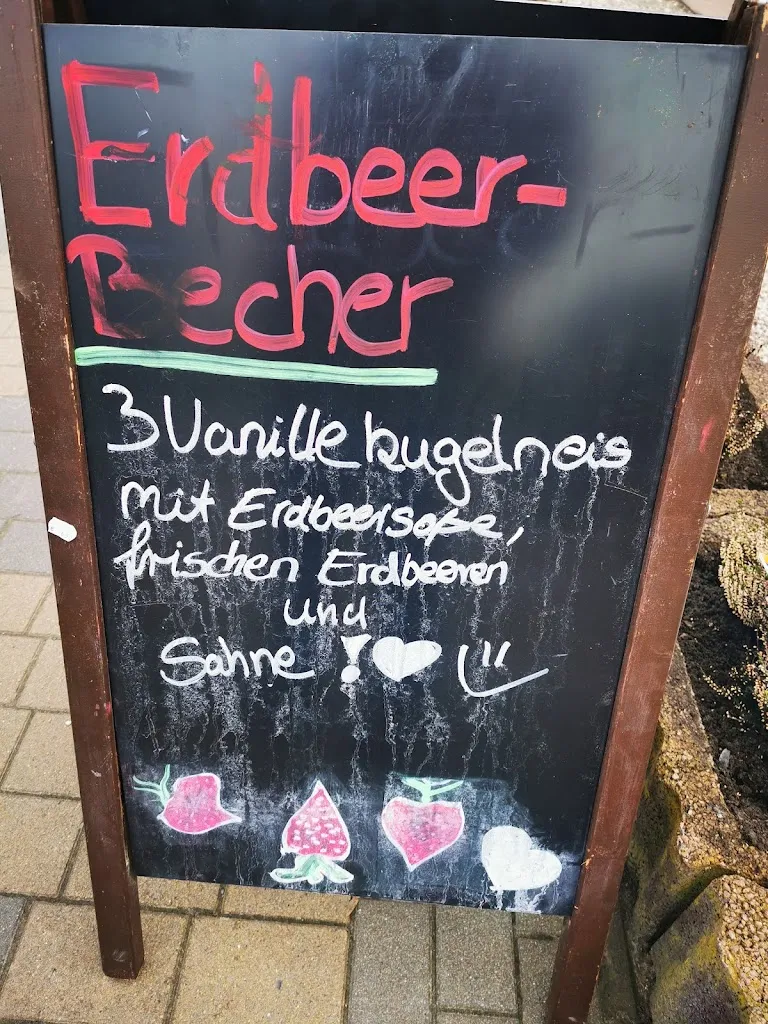 Erdbeer-
Becher
3 Vanillekugelneis
mit Erdbeersoße,
frischen Erdbeeren
und
Sahne !